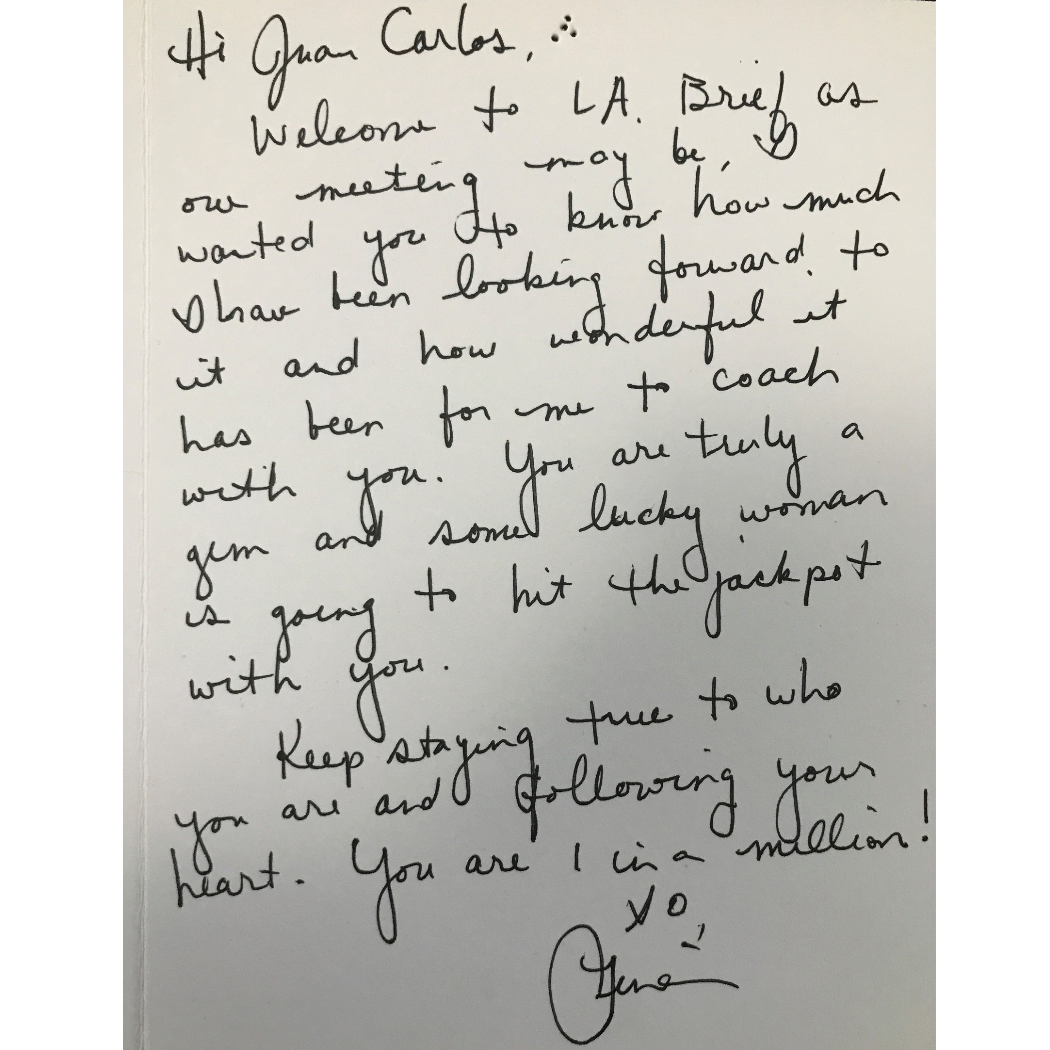 Hi Juan Carlos,
Welcome to LA. Brief as
our meeting may be, I
wanted you to know how much
I have been looking forward to
it and how wonderful it
has been for me to coach
with you. You are truly a
gem and some lucky woman
is going to hit the jackpot
with you.
Keep staying true to who
you are and following your
heart. You are 1 in a million!
XO,